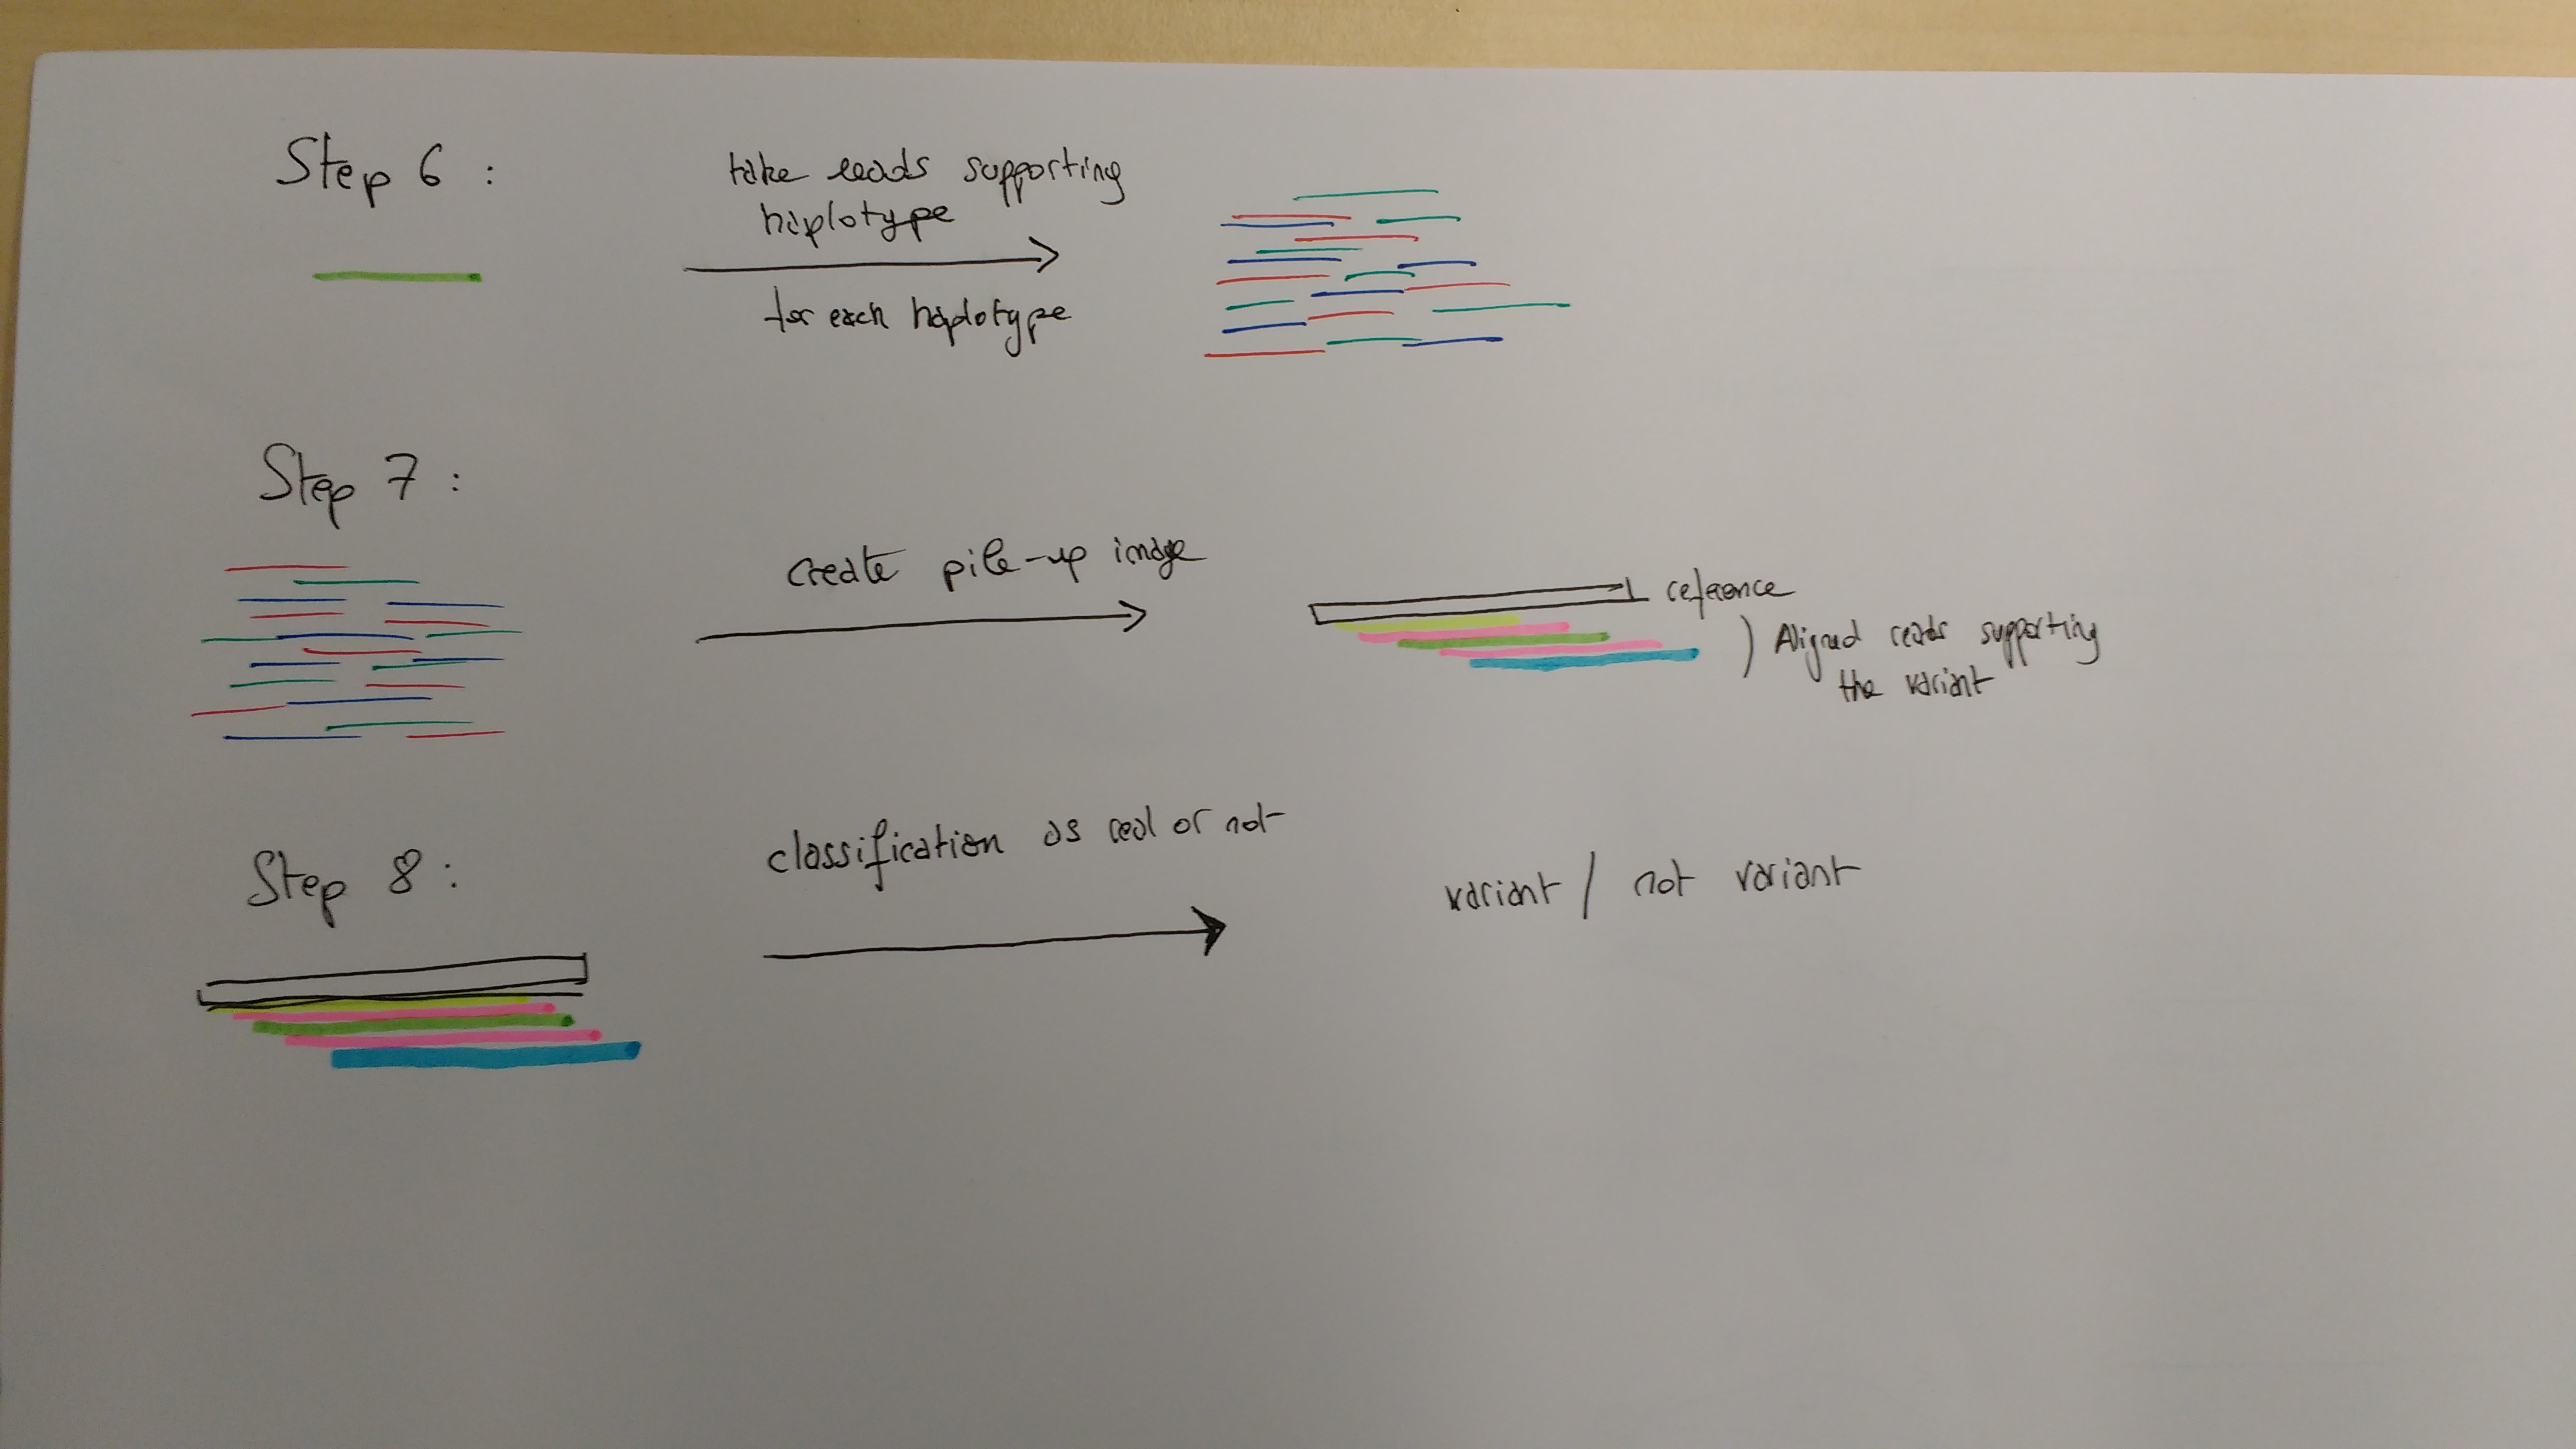 Step 6 :
take reads supporting
haplotype
for each haplotype
Step 7 :
create pile-up image
reference
) Aligned reads supporting
the variant
Step 8 :
classification as real or not
variant / not variant